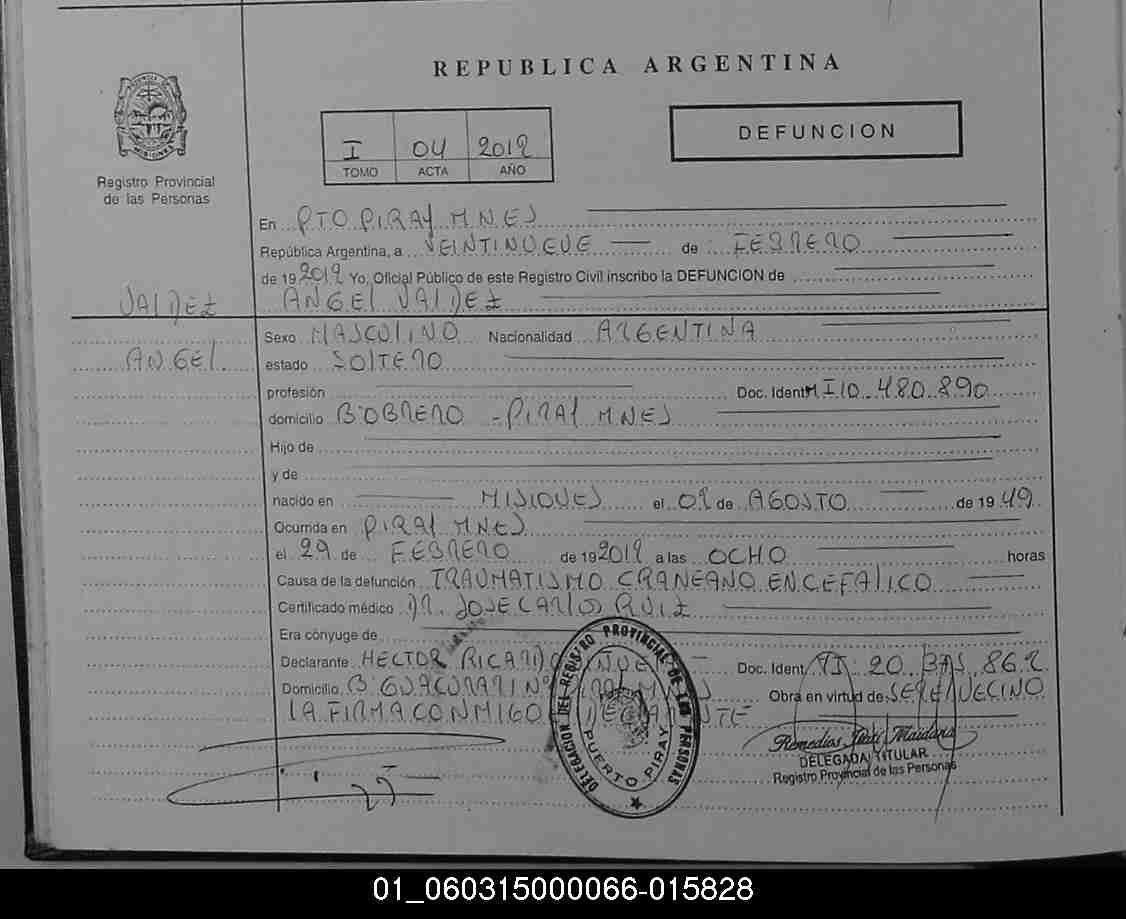 REPUBLICA ARGENTINA
Registro Provincial
de las Personas
I 04 2012
TOMO ACTA AÑO
DEFUNCION
En PTO PIRAY MNES
República Argentina, a VEINTINUEVE de FEBRERO
de 19 2012 Yo, Oficial Público de este Registro Civil inscribo la DEFUNCION de
VALDEZ
ANGEL VALDEZ
ANGEL
Sexo MASCULINO Nacionalidad ARGENTINA
estado SOLTERO
profesión Doc. Ident MI 10.480.890
domicilio B° OBRERO - PIRAY MNES
Hijo de
y de
nacido en MISIONES el 02 de AGOSTO de 19 49
Ocurrida en PIRAY MNES
el 29 de FEBRERO de 19 2012 a las OCHO horas
Causa de la defunción TRAUMATISMO CRANEANO ENCEFALICO
Certificado médico DR. JOSE CARLOS RUIZ
Era cónyuge de
Declarante HECTOR RICARDO Doc. Ident MI 20.
Domicilio B° GUACURARI Nº Obra en virtud de SER EL VECINO
LA FIRMA CONMIGO
DELEGACION DEL REGISTRO PROVINCIAL DE LAS PERSONAS
PUERTO PIRAY
Remedios Maidana
DELEGADA TITULAR
Registro Provincial de las Personas
01_060315000066-015828